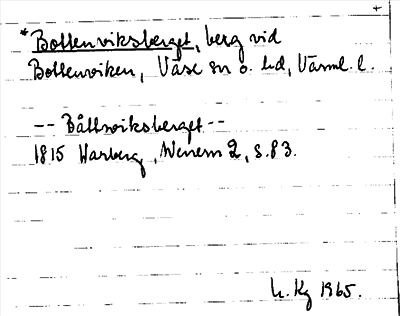 *Bottenviksberget, berg vid
Bottenviken, Väse sn o. hd, Värml. l.
-- Båttnwiksberget --
1815 Warberg, Wenern 2, s. 83.
L. Kg 1965.